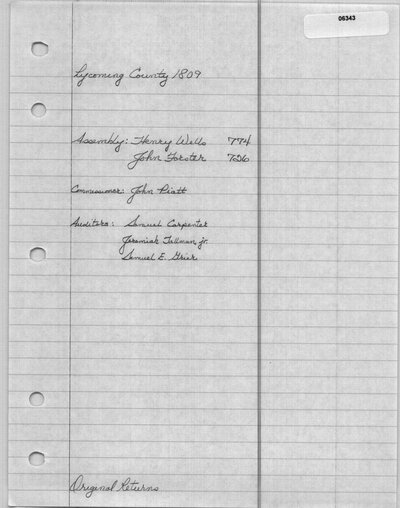 06343
Lycoming County 1809
Assembly: Henry Wells 774
John Forster 756
Commissioner: John Piatt
Auditors: Samuel Carpenter
Jeremiah Tallman jr.
Samuel E. Grier
Original Returns